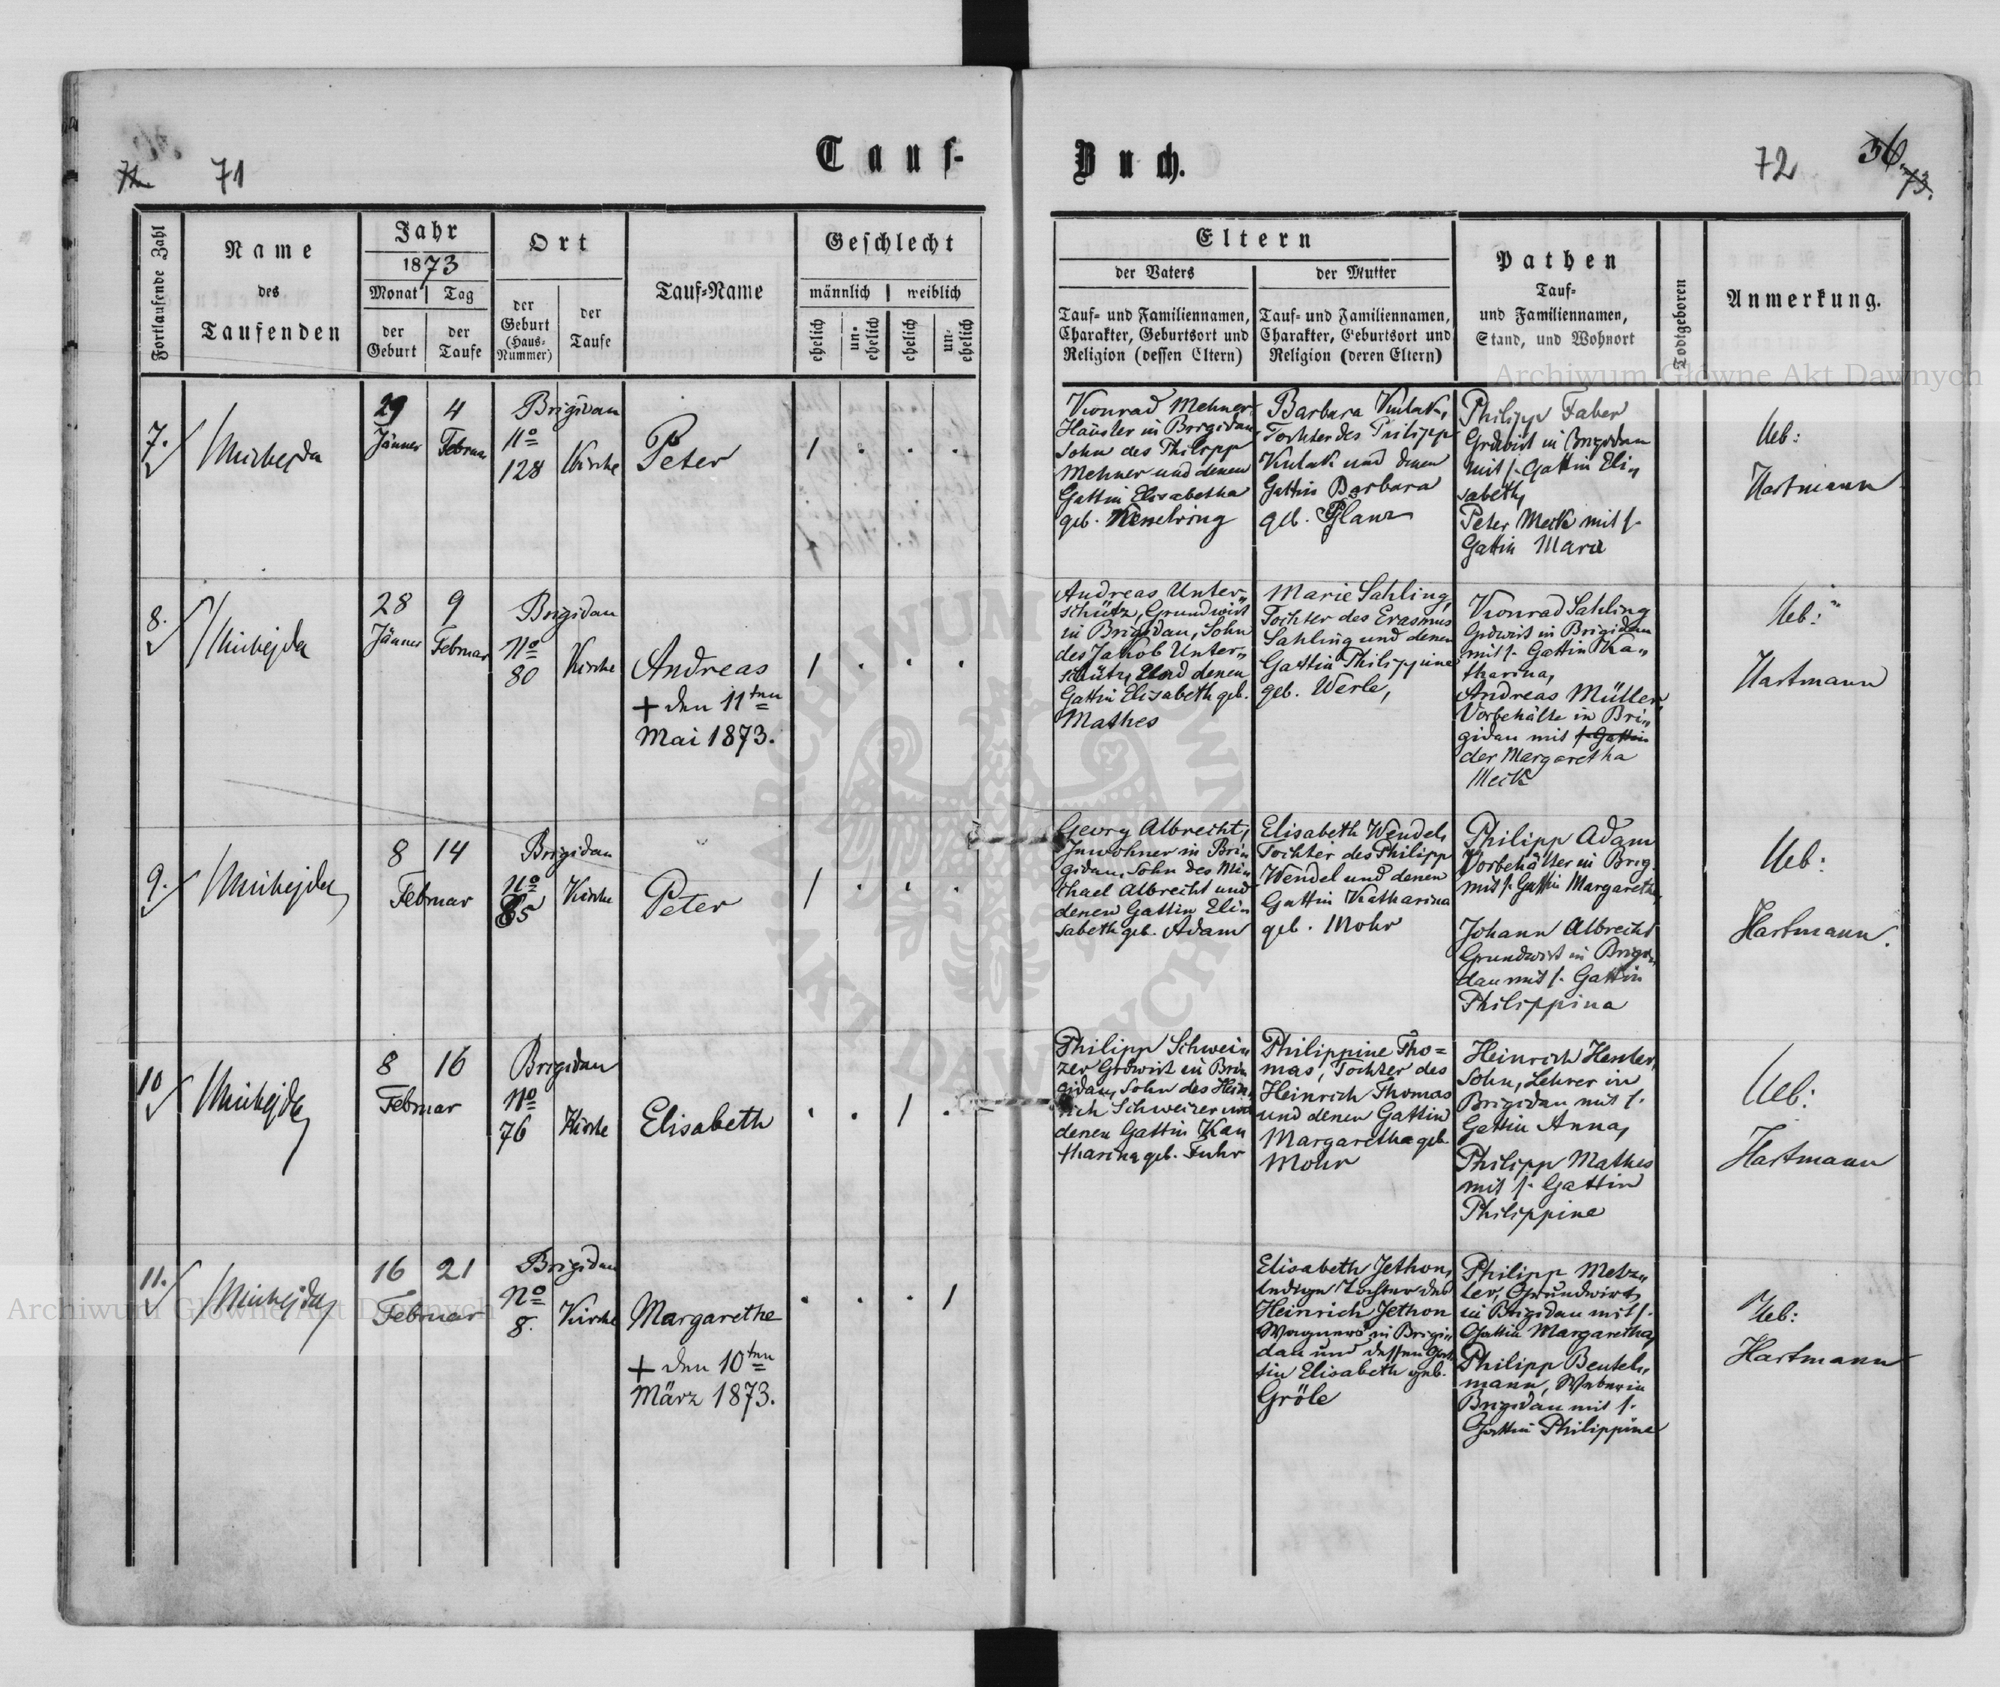 71
Tauf-
Buch.
72
36.
73.
Fortlaufende Zahl
Name
des
Taufenden
Jahr
1873
Monat
Tag
der
Geburt
der
Taufe
Ort
der
Geburt
(Haus-
Nummer)
der
Taufe
Tauf-Name
Geschlecht
männlich
weiblich
ehelich
un-
ehelich
ehelich
un-
ehelich
Eltern
der Vaters
der Mutter
Tauf- und Familiennamen,
Charakter, Geburtsort und
Religion (dessen Eltern)
Tauf- und Familiennamen,
Charakter, Geburtsort und
Religion (deren Eltern)
Pathen
Tauf-
und Familiennamen,
Stand, und Wohnort
Todtgeboren
Anmerkung.
7.
29
Jänner
4
Februar
Brigidau
No
128
Kirche
Peter
1 . . .
Konrad Mehner
Häusler in Brigidau,
Sohn des Philipp
Mehner und denen
Gattin Elisabetha
geb.
Barbara Kulak,
Tochter des Philipp
Kulak und denen
Gattin Barbara
geb. Glanz
Philipp Faber
Grdwirt in Brigidau
mit s. Gattin Eli„
sabeth,
Peter Meck mit s.
Gattin Marie
Ueb:
Hartmann
8.
28
Jänner
9
Februar
Brigidau
No
80
Kirche
Andreas
+ den 11ten
Mai 1873.
1 . . .
Andreas Unter„
schütz, Grundwirt
in Brigidau, Sohn
des Jakob Unter„
schütz und denen
Gattin Elisabeth geb.
Mathes
Marie Sahling,
Tochter des Erasmus
Sahling und denen
Gattin Philippine
geb. Werle,
Konrad Sahling
Grdwirt in Brigidau
mit s. Gattin Ka„
tharina,
Andreas Müller,
Vorbehälte in Bri„
gidau mit s. Gattin
der Margaretha
Meck
Ueb:
Hartmann
9.
8
14
Februar
Brigidau
No
85
Kirche
Peter
1 . . .
Georg Albrecht,
Inwohner in Bri„
gidau, Sohn des Mi„
chael Albrecht und
denen Gattin Eli„
sabeth geb. Adam
Elisabeth Wendel,
Tochter des Philipp
Wendel und denen
Gattin Katharina
geb. Mohr
Philipp Adam
Vorbehälter in Brig.
mit s. Gattin Margareth,
Johann Albrecht
Grundwirt in Brigi„
dau mit s. Gattin
Philippina
Ueb:
Hartmann.
10
8
16
Februar
Brigidau
No
76
Kirche
Elisabeth
. . 1 .
Philipp Schwei„
zer Grdwirt in Bri„
gidau, Sohn des Hein„
rich Schweizer und
denen Gattin Ka„
tharina geb. Fuhr
Philippine Tho=
mas, Tochter des
Heinrich Thomas
und denen Gattin
Margaretha geb.
Mohr
Heinrich
Sohn, Lehrer in
Brigidau mit s.
Gattin Anna,
Philipp Mathes
mit s. Gattin
Philippine
Ueb:
Hartmann
11.
16
21
Februar
Brigidau
No
8.
Kirche
Margarethe
+ den 10ten
März 1873.
. . . 1
Elisabeth Jethon,
ledige Tochter des
Heinrich Jethon
Wagners in Brigi„
dau und dessen Gat„
tin Elisabeth geb.
Gröle
Philipp Metz„
ler, Grundwirt
in Brigidau mit s.
Gattin Margaretha,
Philipp Beutel„
mann, Weber in
Brigidau mit s.
Gattin Philippine
Ueb:
Hartmann
Archiwum Główne Akt Dawnych
Archiwum Główne Akt Dawnych